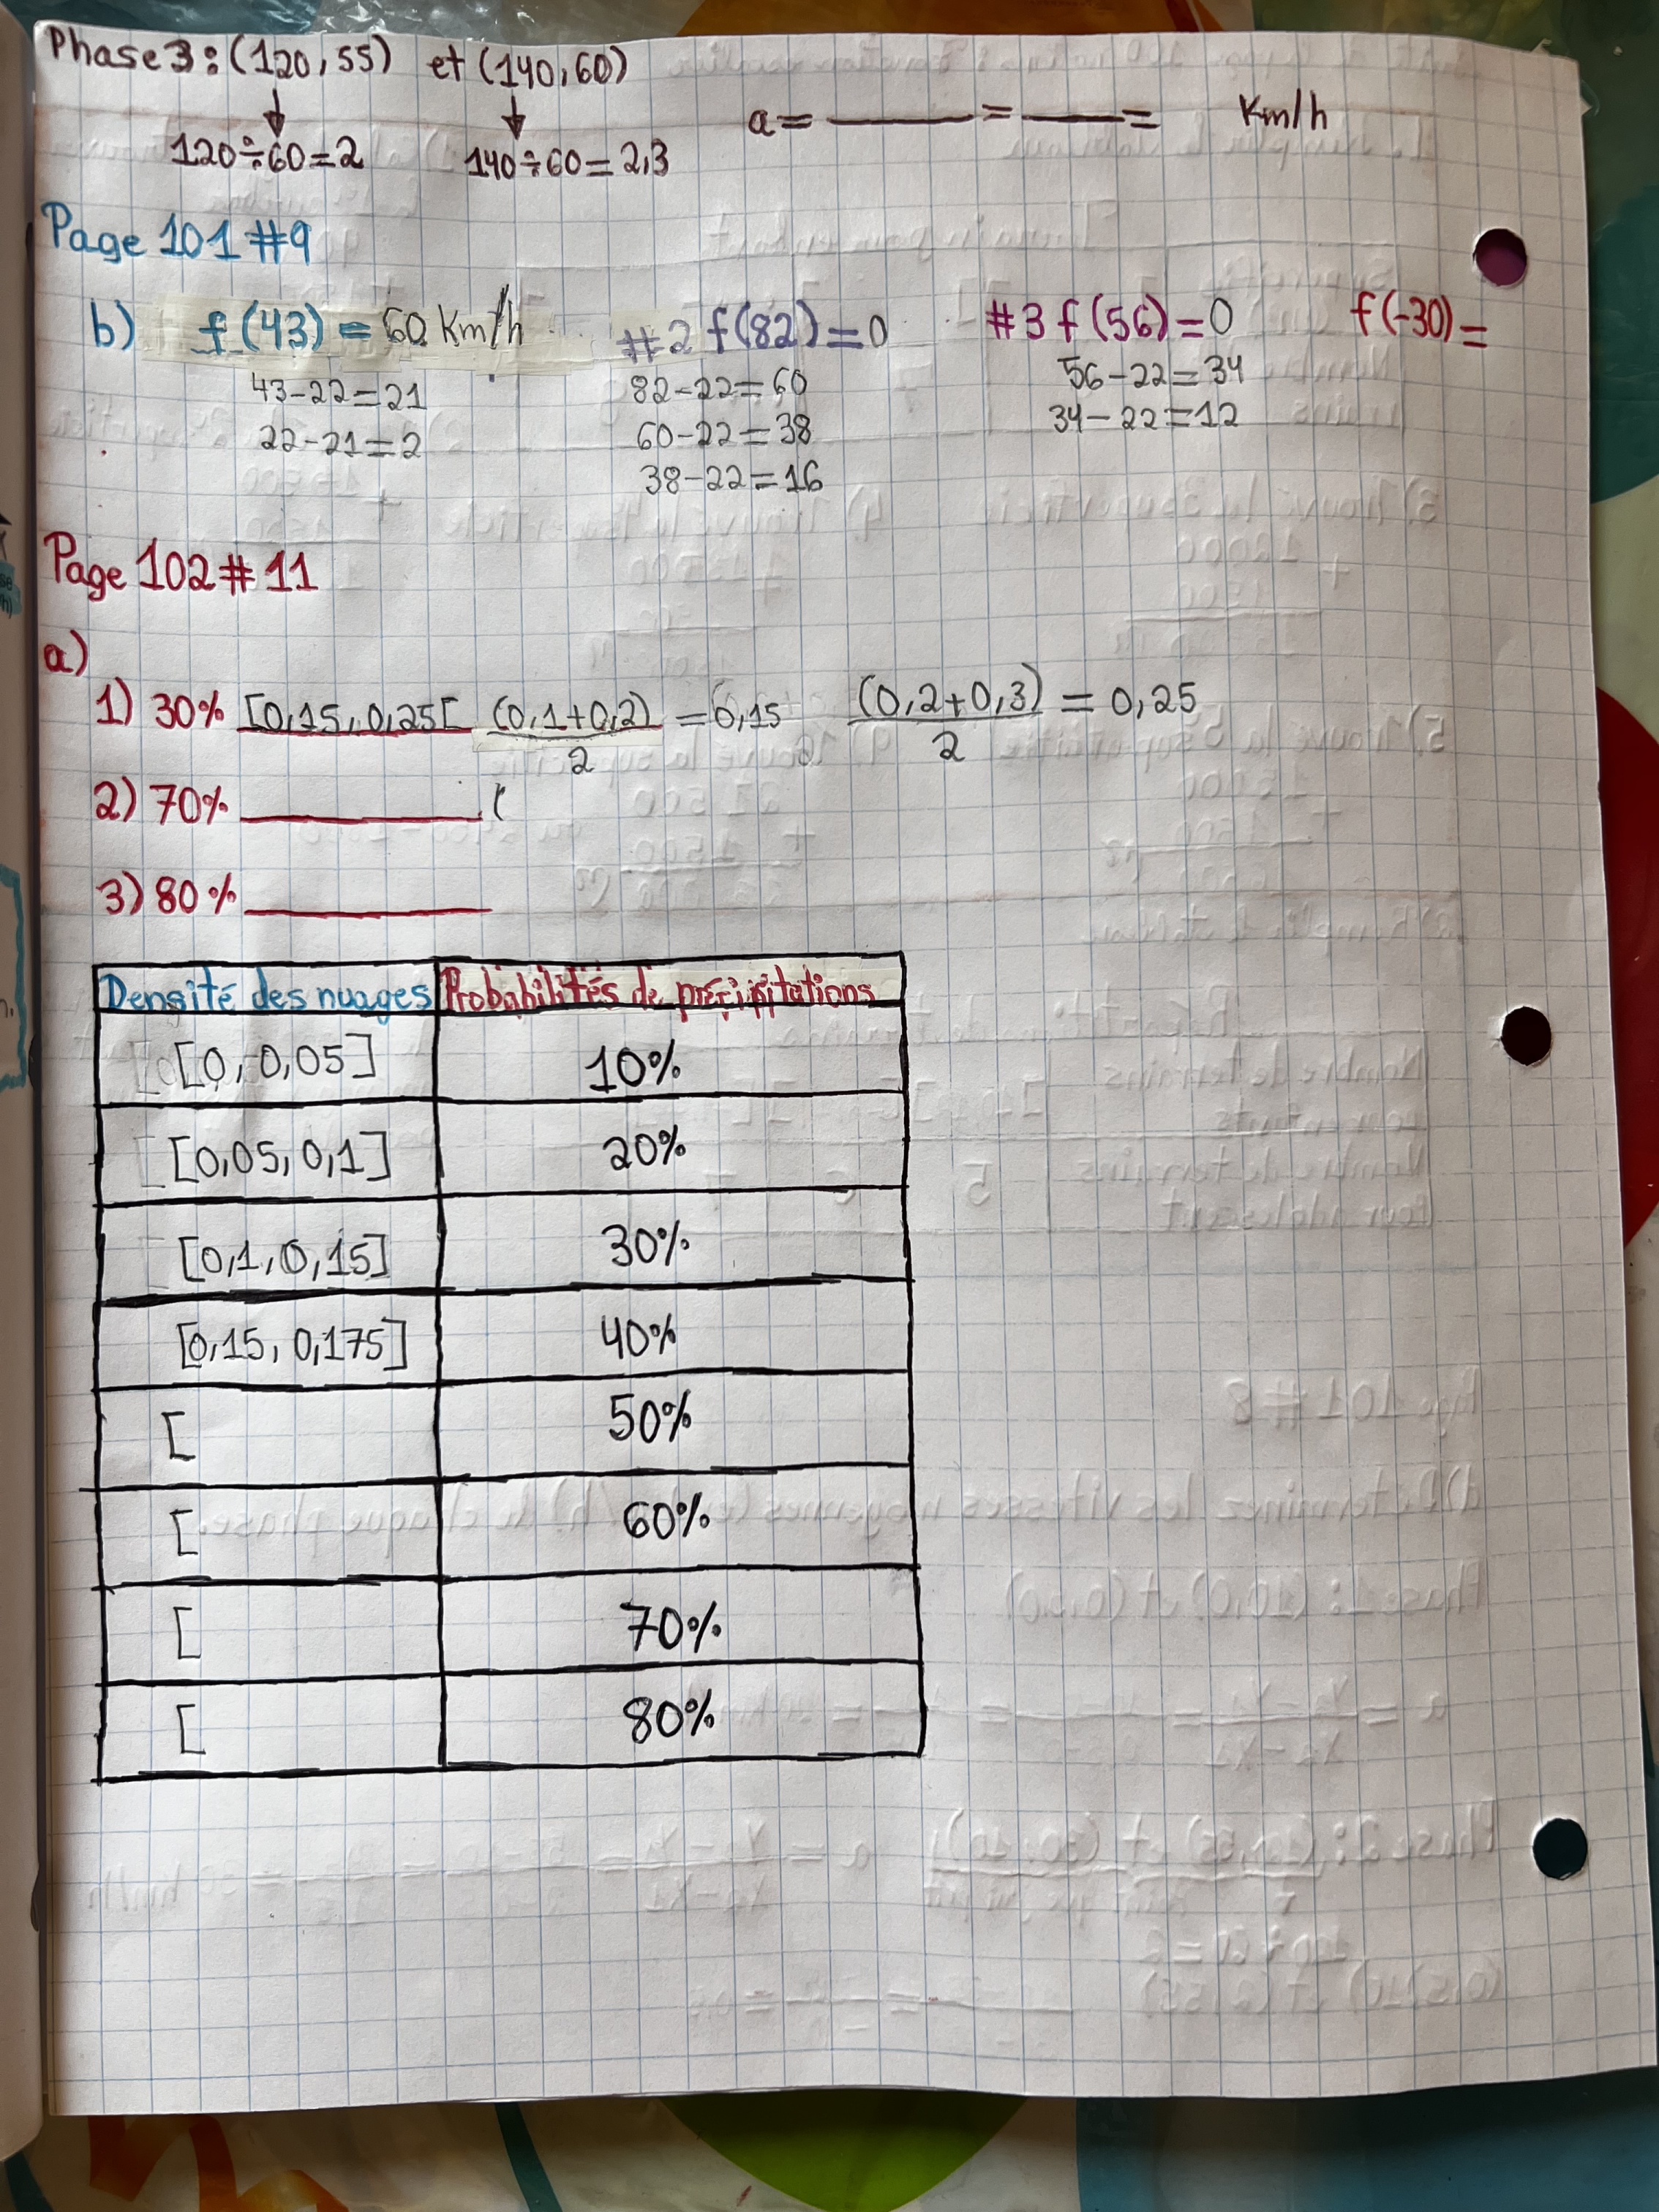 Phase 3 : (120, 55) et (140, 60)
a = ____ = ____ = Km/h
120÷60=2 140÷60=2,3
Page 101 #9
b) f(43) = 60 Km/h #2 f(82)=0 #3 f(56)=0 f(-30)=
43-22=21 82-22=60 56-22=34
22-21=2 60-22=38 34-22=12
38-22=16
Page 102 # 11
a)
1) 30% [0,15, 0,25[ (0,1+0,2)/2 = 0,15 (0,2+0,3)/2 = 0,25
2) 70% ________ (
3) 80% ________
Densité des nuages Probabilités de précipitations
[0, 0,05] 10%
[0,05, 0,1] 20%
[0,1, 0,15] 30%
[0,15, 0,175] 40%
[ 50%
[ 60%
[ 70%
[ 80%